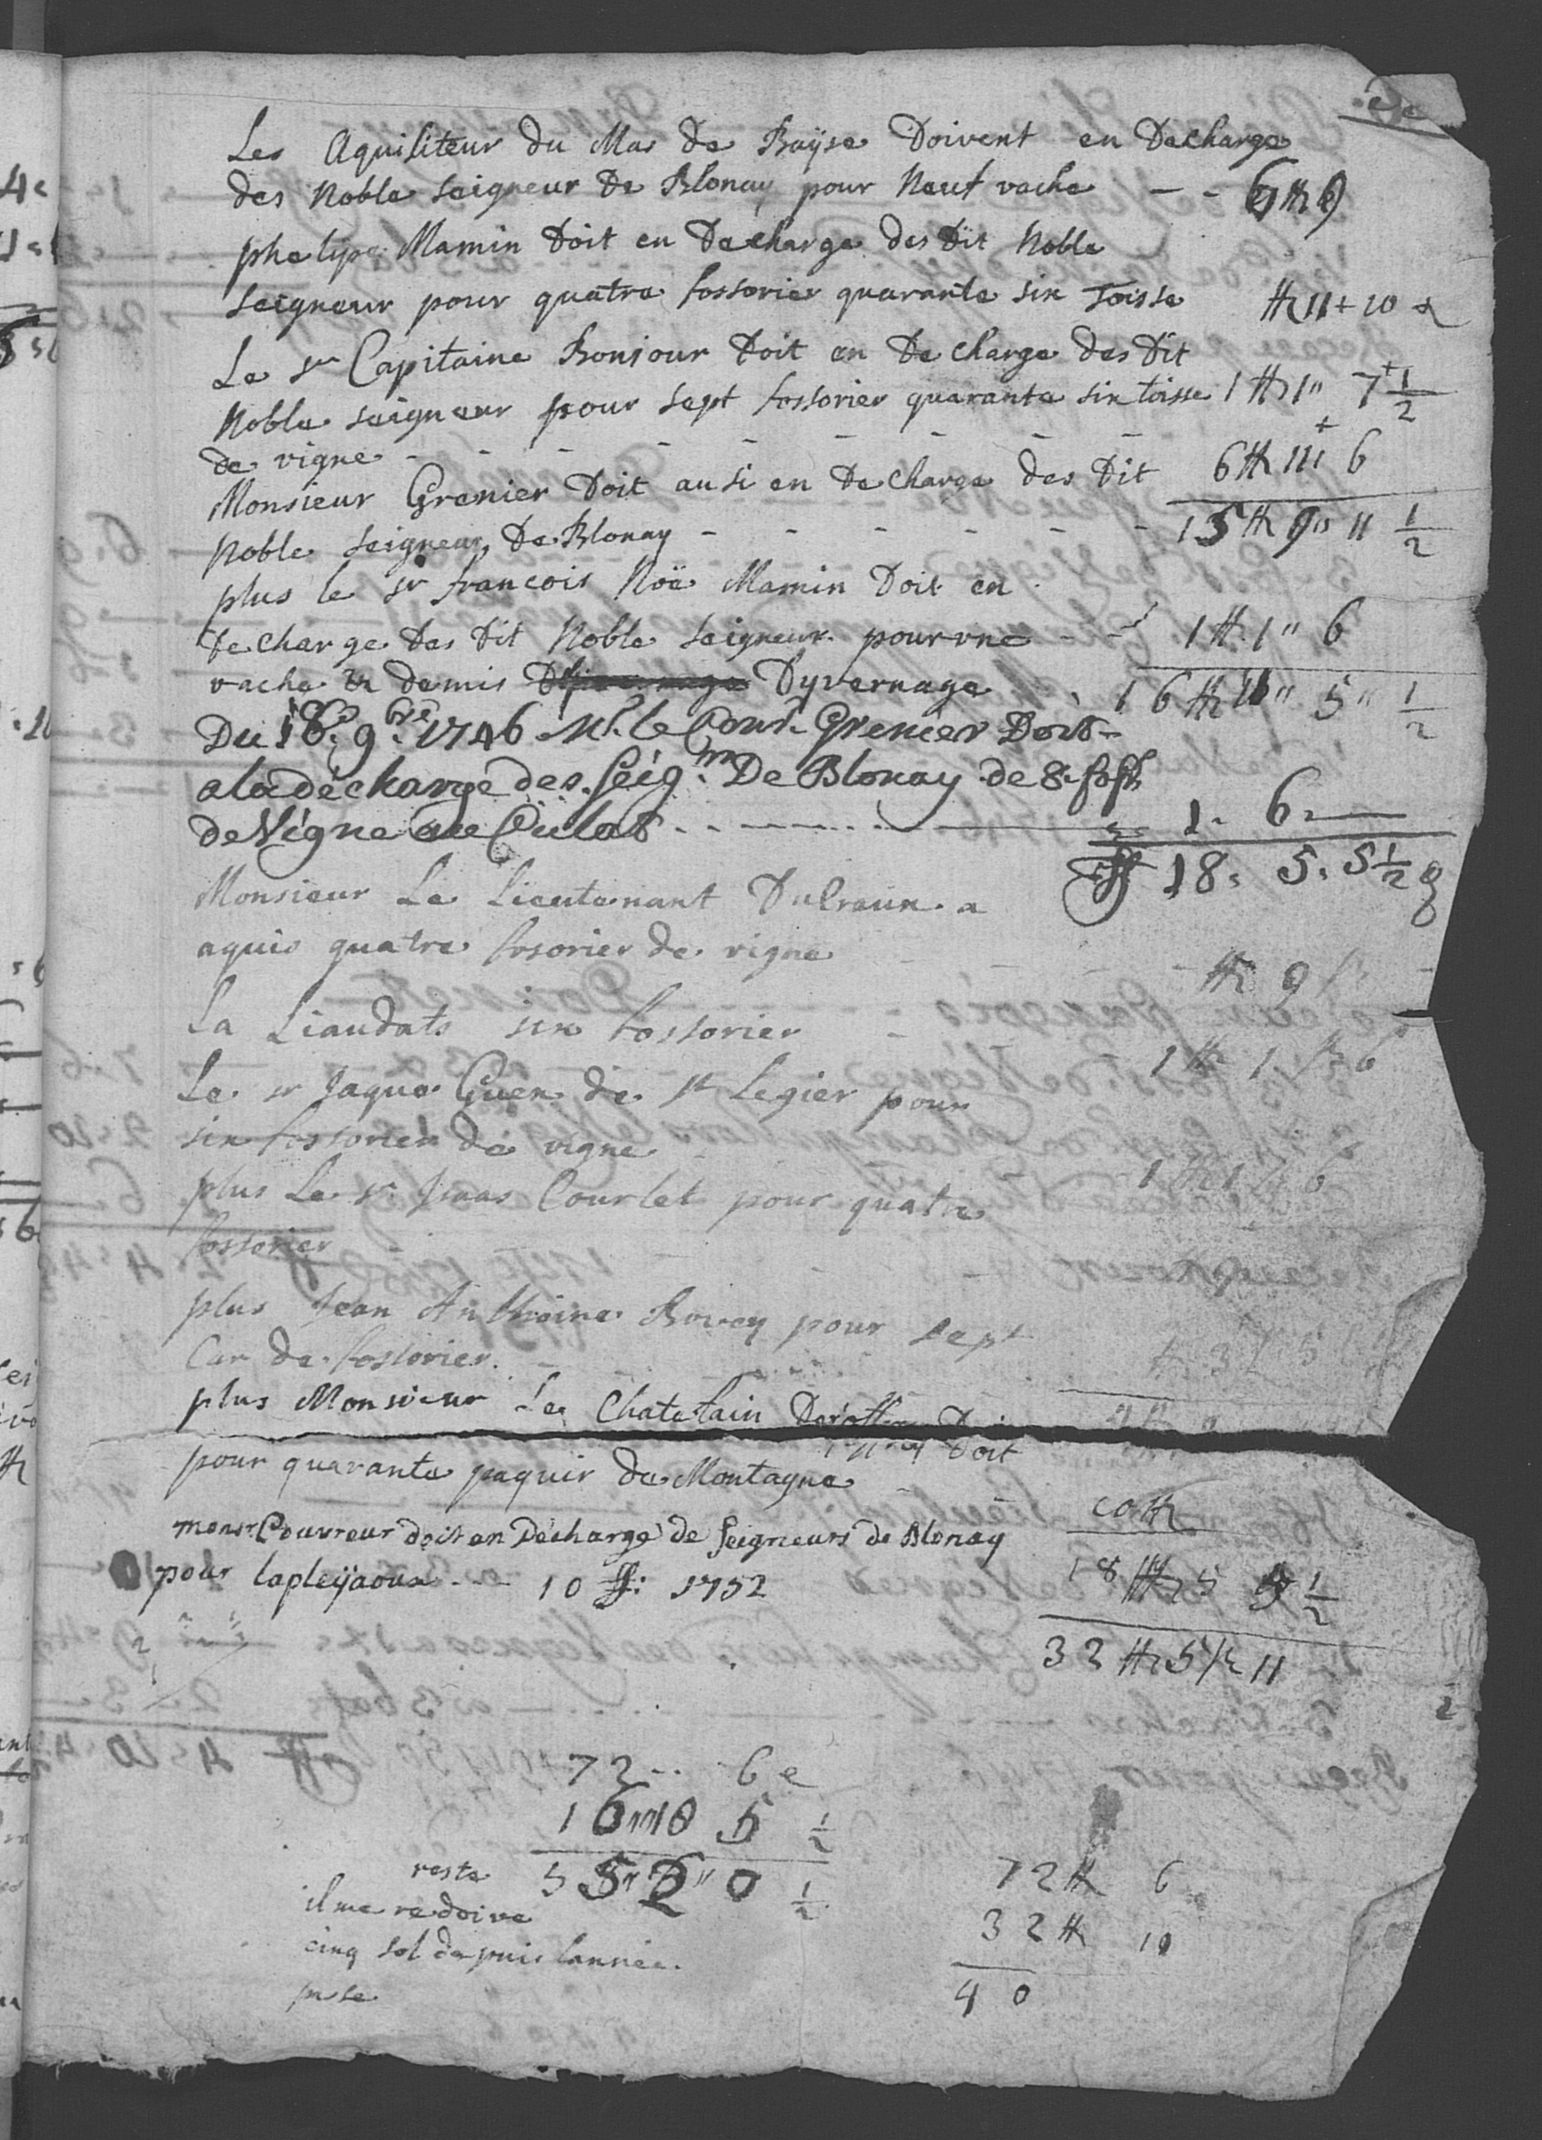 Les Aquiliteur du Mas de Bayse Doivent en Decharge
des Noble seigneur De Blonay pour Neuf vache - - 6 ₶ 9
phelype Mamin Doit en Decharge des Dit Noble
seigneur pour quatre fossorier quarante sin Toisse ₶ 11 + 10
Le Sr Capitaine Bonjour Doit en De charge des Dit
Noble seigneur pour sept fossorier quarante sin toisse 1 ₶ 1" 7 1/2
de vigne - - - - - - -
Monsieur Grenier Doit ausi en De charge des Dit 6 ₶ 111 6
Noble seigneur De Blonay - - - - - - 15 ₶ 9" 11 1/2
plus le Sr francois Noë Mamin Doit en
De charge Des Dit Noble seigneur pour vne - - 1 ₶ 1" 6
vache & demis Dyvernage 16 ₶ 5" 1/2
Du 18e 9bre 1746 Mr. le Grenier Doit
a la décharge des Seigrs De Blonay de 8 foss
de Vigne au - - - - - 1. 6.
₶ 18. 5. 5 1/2
Monsieur Le Lieutenant a
aquis quatre fosorier de vigne - - - ₶ 9
La Liaudats sin fossorier - - 1 ₶ 1. 6
Le Sr Jaque Guex de St Legier pour
sin fossorier de vigne - - 1 ₶ 1 6
plus Le Sr Courlet pour quatre
fossorier - - ₶ 9
plus Jean Anthoine Bovey pour sept
Car de fossorier - ₶ 3 5
plus Monsieur Le Chatelain Doit
pour quarante paquir de Montagne
10 ₶
monsr Couvreur doit en Decharge de Seigneurs de Blonay
18 ₶ 5 5 1/2
pour lapleÿaoux - - - 10 ff: 1752
32 ₶ 5 11
72 - - 6
16 10 5 1/2
55" 2" 0 1/2
reste
il me redoive
cinq sol depuis lannée
72 ₶ 6
32 ₶ 10
40